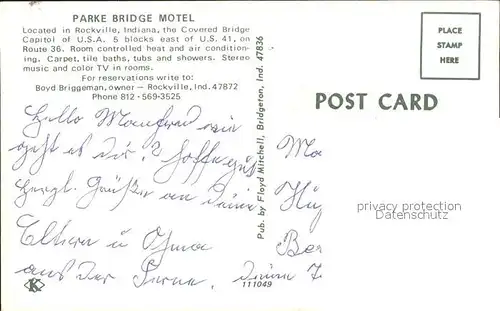 PARKE BRIDGE MOTEL
Located in Rockville, Indiana, the Covered Bridge
Capitol of U.S.A. 5 blocks east of U.S. 41, on
Route 36. Room controlled heat and air condition-
ing. Carpet, tile baths, tubs and showers. Stereo
music and color TV in rooms.
For reservations write to:
Boyd Briggeman, owner — Rockville, Ind. 47872
Phone 812 - 569-3525
Hallo Manfred wie
geht es Dir? Hoffe gut
Grüße an Deine
Eltern u Oma
aus der Ferne.
Pub. by Floyd Mitchell, Bridgeton, Ind. 47836
K
111049
PLACE
STAMP
HERE
POST CARD
privacy protection
Datenschutz